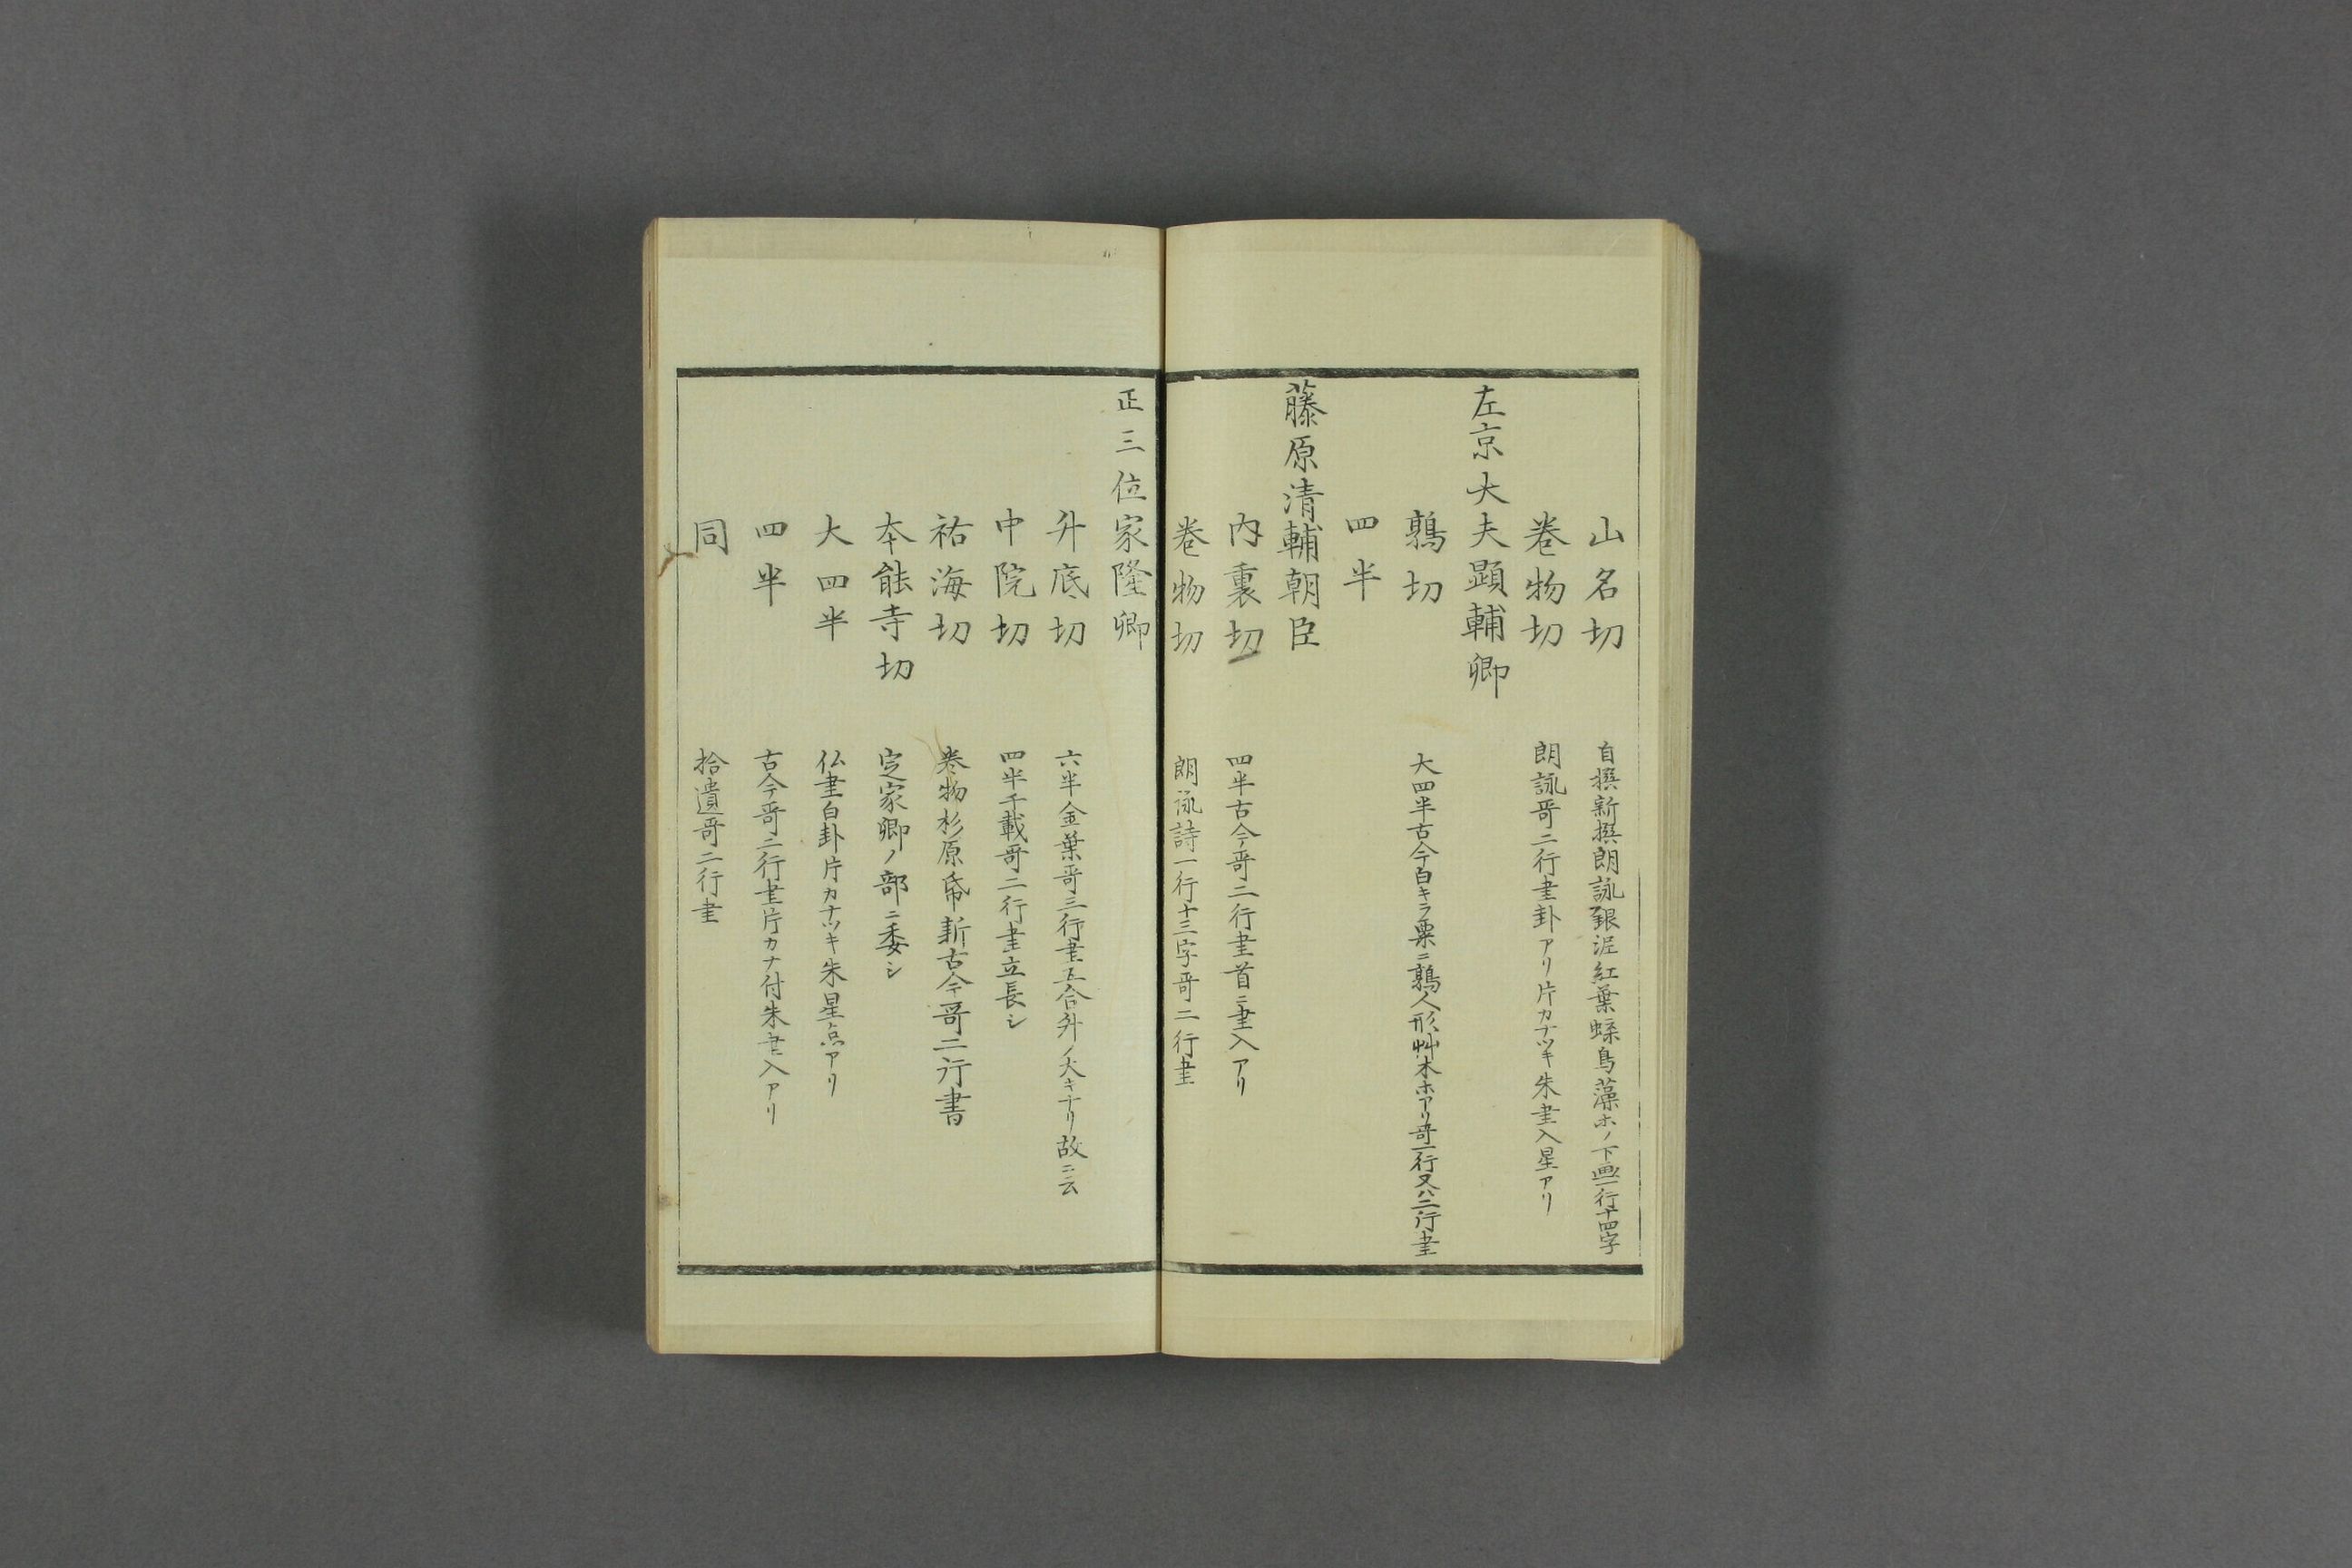 山名切　自撰新撰朗詠銀泥紅葉蝶鳥藻ホノ下画一行十四字
巻物切　朗詠哥二行書卦アリ片カナツキ朱書入星アリ
左京大夫顕輔卿
鶉切　大四半古今白キラ粟ニ鶉人形艸木ホアリ哥一行又ハ二行書
四半
藤原清輔朝臣
内裏切　四半古今哥二行書首ニ書入アリ
巻物切　朗詠詩一行十三字哥二行書
正三位家隆卿
升底切　六半金葉哥三行書五合升ノ大キナリ故ニ云
中院切　四半千載哥二行書立長シ
祐海切　巻物杉原帋新古今哥二行書
本能寺切　定家卿ノ部ニ委シ
大四半　仏書白卦片カナツキ朱星点アリ
四半　古今哥二行書片カナ付朱書入アリ
同　拾遺哥二行書